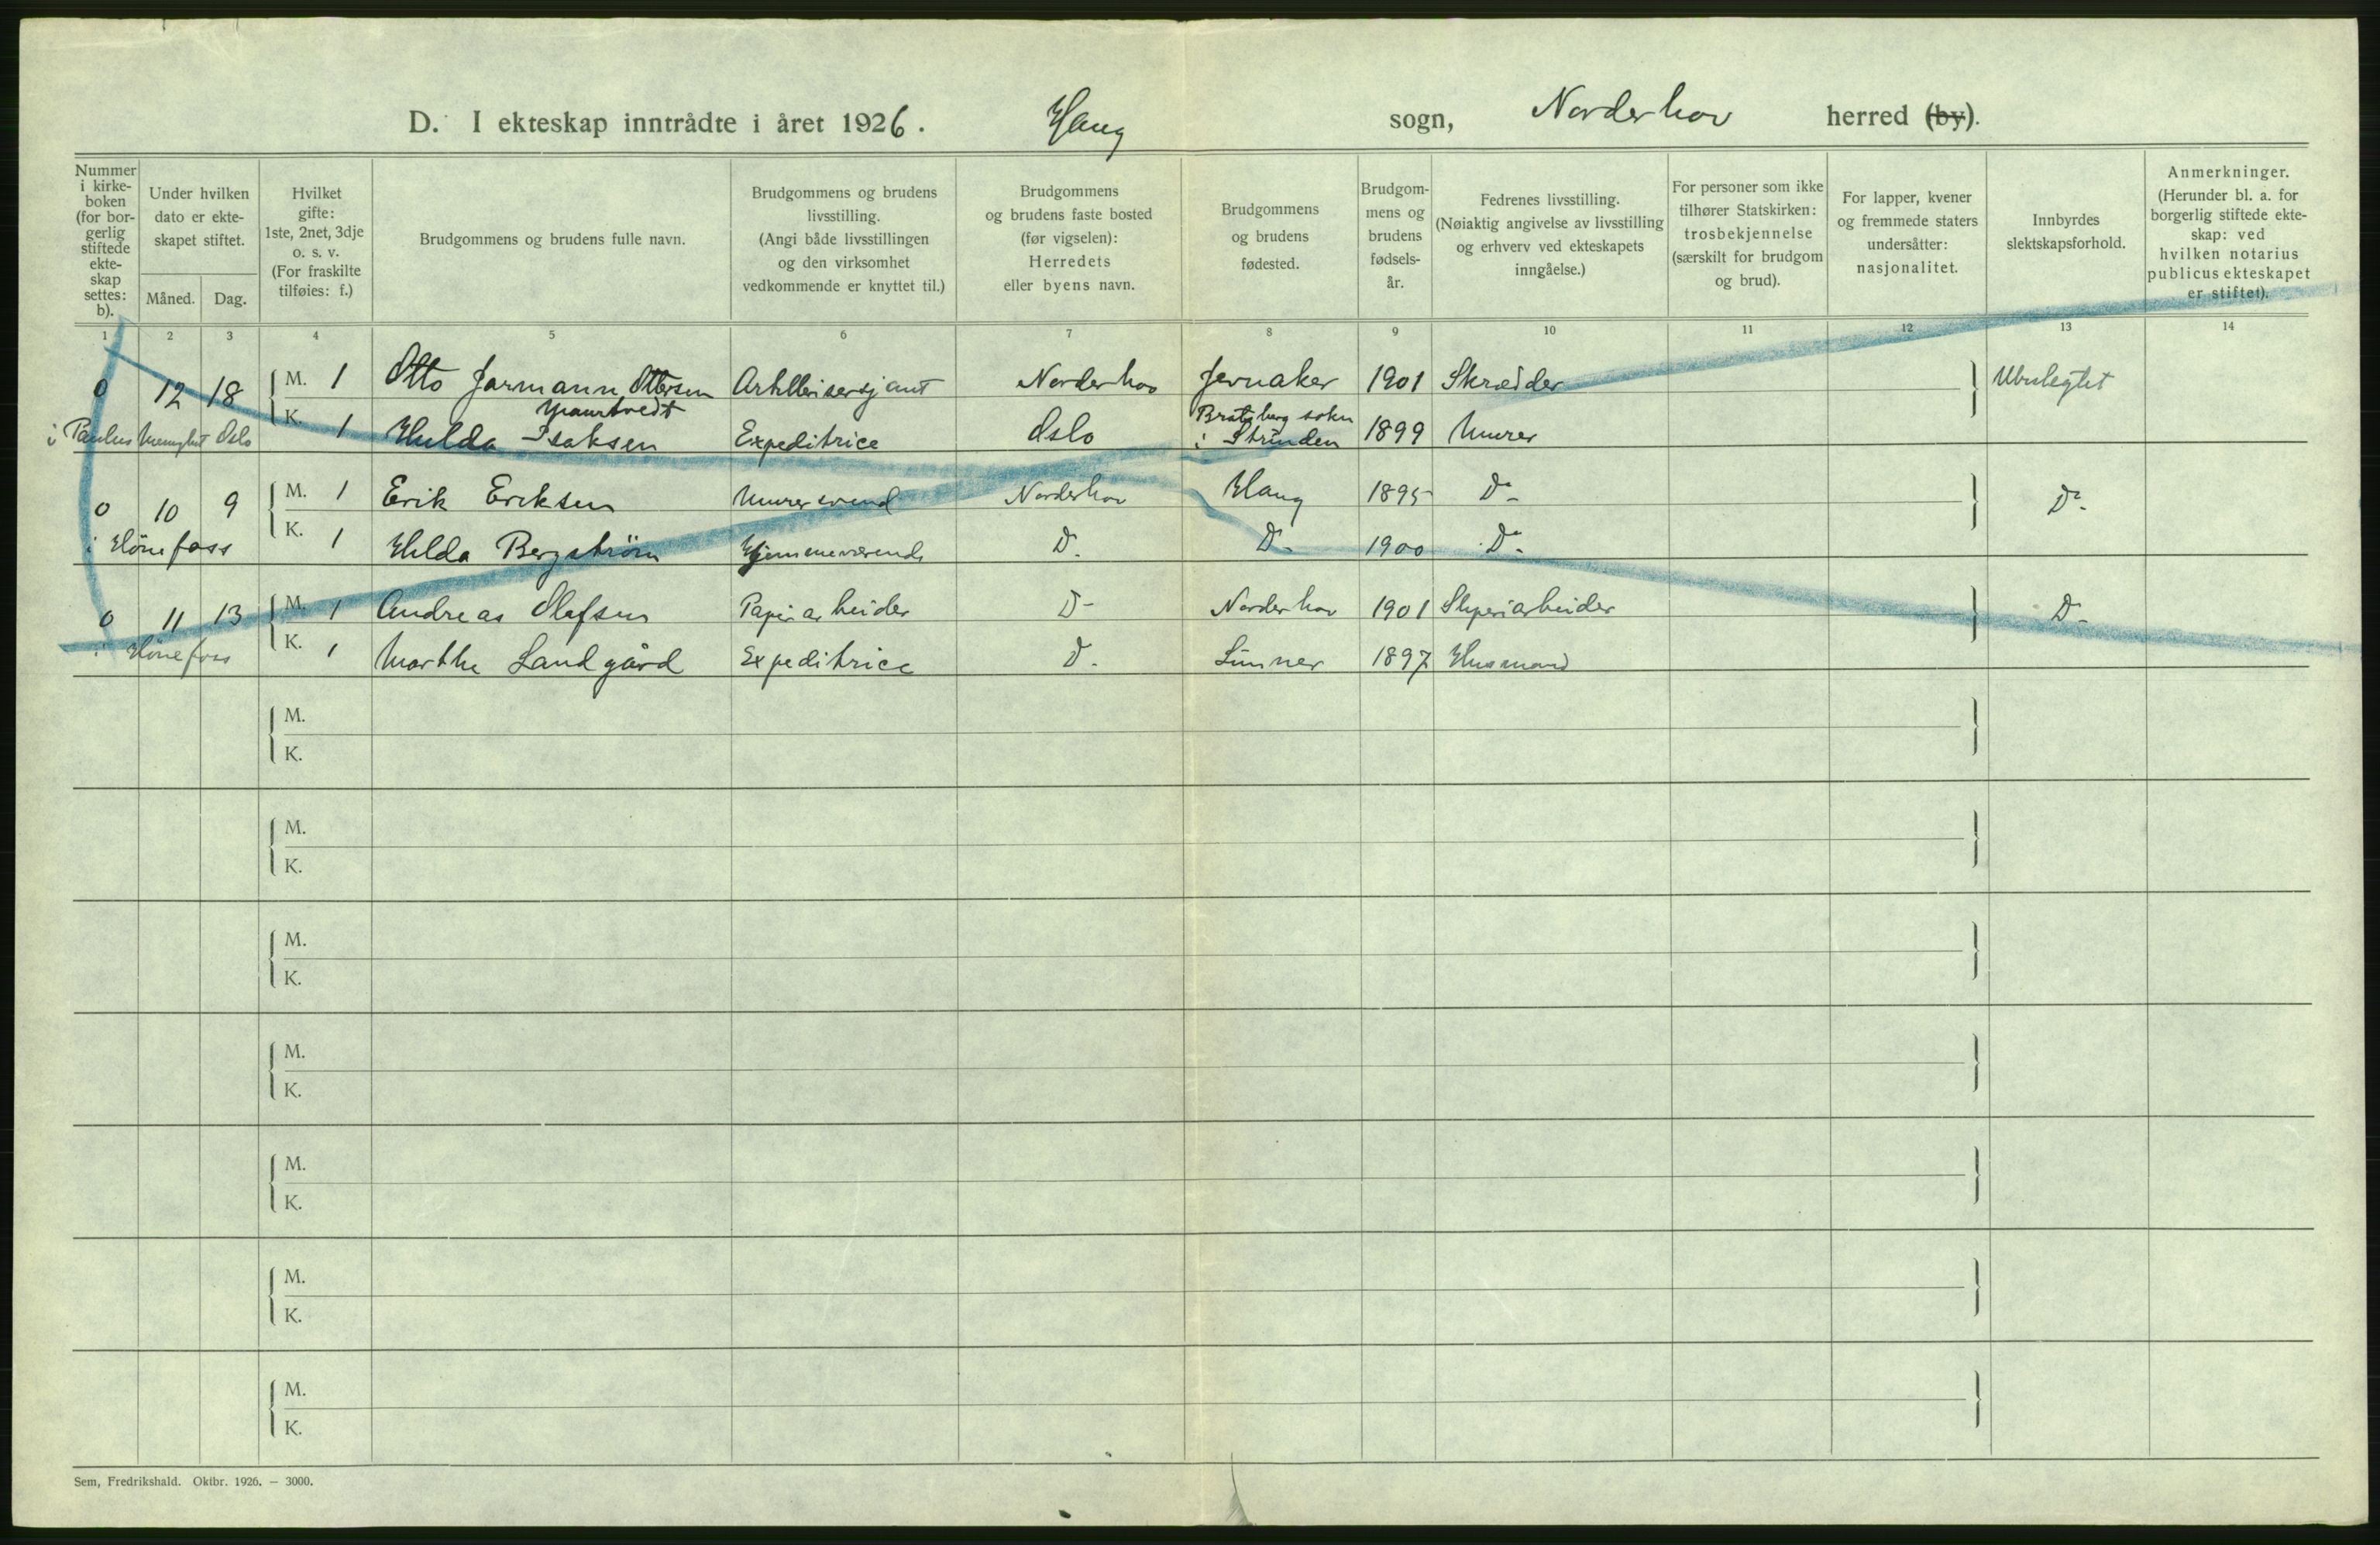 D. I ekteskap inntrådte i året 1926. Haug sogn, Norderhov herred (by).
Nummer i kirke-boken (for bor-gerlig stiftede ekte-skap settes: b).
Under hvilken dato er ekte-skapet stiftet.
Måned. Dag.
Hvilket gifte: 1ste, 2net, 3dje o. s. v. (For fraskilte tilføies: f.)
Brudgommens og brudens fulle navn.
Brudgommens og brudens livsstilling. (Angi både livsstillingen og den virksomhet vedkommende er knyttet til.)
Brudgommens og brudens faste bosted (før vigselen): Herredets eller byens navn.
Brudgommens og brudens fødested.
Brudgom-mens og brudens fødsels-år.
Fedrenes livsstilling. (Nøiaktig angivelse av livsstilling og erhverv ved ekteskapets inngåelse.)
For personer som ikke tilhører Statskirken: trosbekjennelse (særskilt for brudgom og brud).
For lapper, kvener og fremmede staters undersåtter: nasjonalitet.
Innbyrdes slektskapsforhold.
Anmerkninger. (Herunder bl. a. for borgerlig stiftede ekte-skap: ved hvilken notarius publicus ekteskapet er stiftet).
1 2 3 4 5 6 7 8 9 10 11 12 13 14
0 12 18 M. 1 Otto Jarmann Ottersen Artillerisersjant Norderhov Jevnaker 1901 Skrædder Ubeslegtet
i Paulus Menighet Oslo K. 1 Hulda Isaksen Expeditrice Oslo Bratsberg sokn i Strinden 1899 Murer
0 10 9 M. 1 Erik Eriksen Murersvend Norderhov Haug 1895 Do Do
i Hönefoss K. 1 Hilda Bergström Hjemmeværende D. D- 1900 Do
0 11 13 M. 1 Andreas Olafsen Papirarbeider D- Norderhov 1901 Sliperiarbeider D-
i Hönefoss K. 1 Marthe Landgård Expeditrice D. Lunner 1897 Husmand
M.
K.
M.
K.
M.
K.
M.
K.
M.
K.
M.
K.
M.
K.
Sem, Fredrikshald. Oktbr. 1926. — 3000.